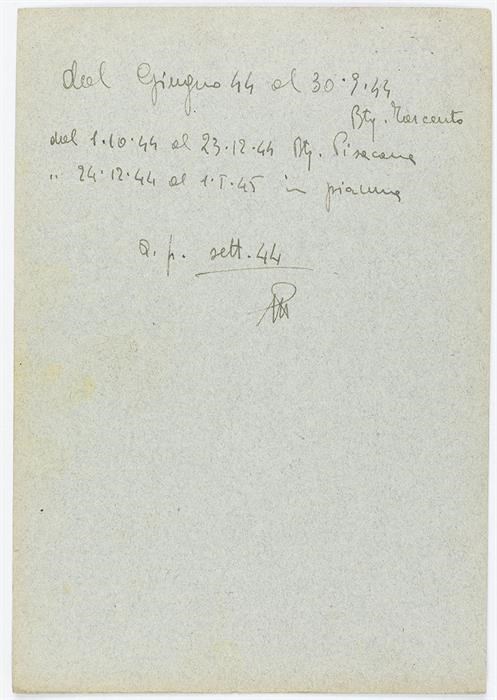 dal Giugno 44 al 30.9.44
Btg. Tarcento
dal 1.10.44 al 23.12.44 Btg. Pisacane
" 24.12.44 al 1.I.45 in pianura
p. sett. 44